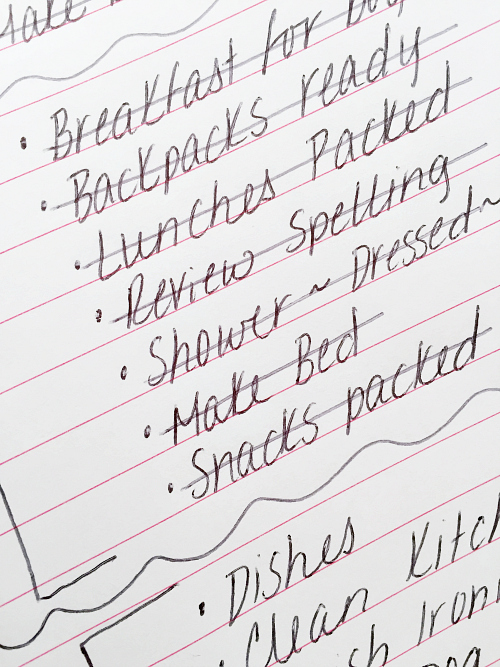 • Breakfast for
• Backpacks ready
• Lunches Packed
• Review Spelling
• Shower ~ Dressed ~
• Make Bed
• Snacks packed
• Dishes
• Clean